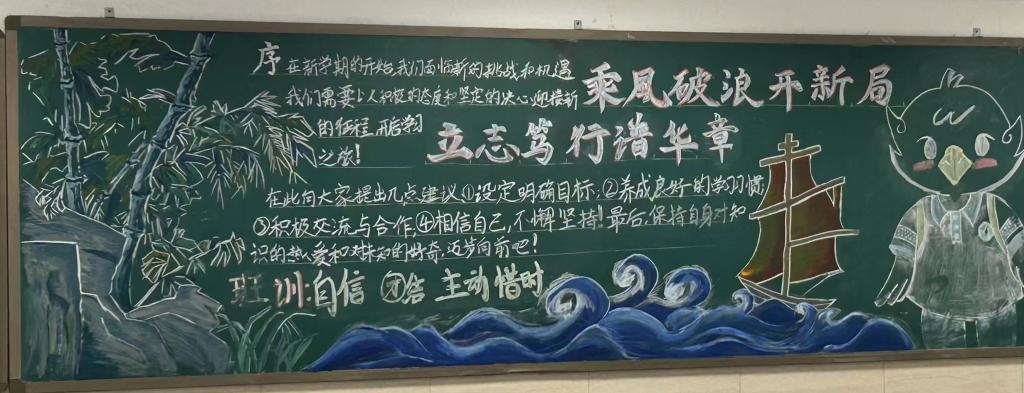 乘风破浪开新局
立志笃行谱华章
序 在新学期的开始,我们面临新的挑战和机遇
我们需要以人积极的态度和坚定的决心迎接新
的征程,开启学习
之旅!
在此向大家提出几点建议①设定明确目标;②养成良好的学习惯;
③积极交流与合作,④相信自己,不懈坚持!最后,保持自身对知
识的热爱和对未知的好奇,迈步向前吧!
班训:自信 团结 主动 惜时